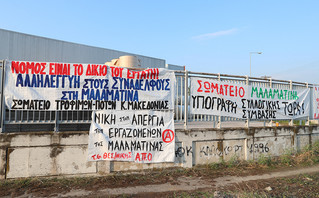 ΝΟΜΟΣ ΕΙΝΑΙ ΤΟ ΔΙΚΙΟ ΤΟΥ ΕΡΓΑΤΗ
ΑΛΛΗΛΕΓΓΥΗ ΣΤΟΥΣ ΣΥΝΑΔΕΛΦΟΥΣ
ΣΤΗ ΜΑΛΑΜΑΤΙΝΑ
ΣΩΜΑΤΕΙΟ ΤΡΟΦΙΜΩΝ-ΠΟΤΩΝ Κ. ΜΑΚΕΔΟΝΙΑΣ
ΝΙΚΗ ΣΤΗΝ ΑΠΕΡΓΙΑ
ΤΩΝ ΕΡΓΑΖΟΜΕΝΩΝ
ΤΗΣ ΜΑΛΑΜΑΤΙΝΑΣ
Α.Π.Ο
ΣΩΜΑΤΕΙΟ ΜΑΛΑΜΑΤΙΝΑ
ΥΠΟΓΡΑΦΗ ΣΥΛΛΟΓΙΚΗΣ
ΣΥΜΒΑΣΗΣ ΤΩΡΑ